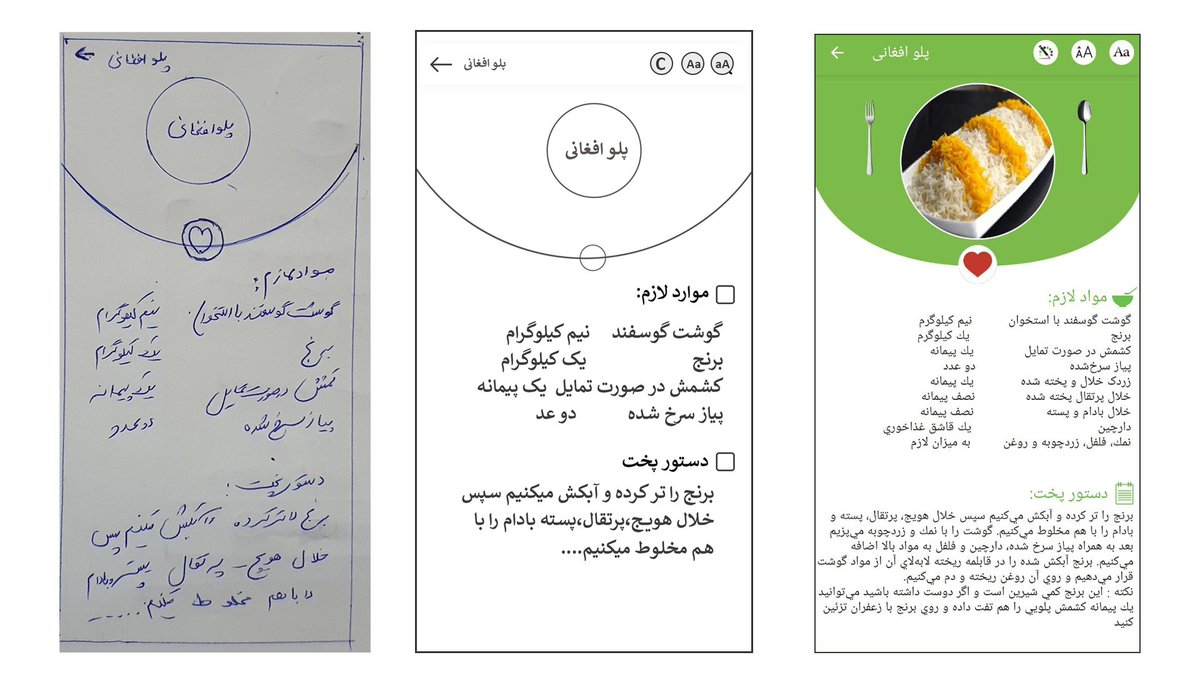 پلو افغانی
پلو افغانی
مواد لازم:
گوشت گوسفند با استخوان نیم کیلوگرام
برنج یک کیلوگرام
کشمش در صورت تمایل یک پیمانه
پیاز سرخ شده دو عدد
دستور پخت:
برنج را تر کرده و آبکش میکنیم سپس
خلال هویج پرتقال پسته و بادام
را با هم مخلوط میکنیم......
پلو افغانی
C Aa aA
پلو افغانی
موارد لازم:
گوشت گوسفند نیم کیلوگرام
برنج یک کیلوگرام
کشمش در صورت تمایل یک پیمانه
پیاز سرخ شده دو عد
دستور پخت
برنج را تر کرده و آبکش میکنیم سپس
خلال هویج،پرتقال،پسته بادام را با
هم مخلوط میکنیم....
پلو افغانی
AA Aa
مواد لازم:
گوشت گوسفند با استخوان نیم کیلوگرم
برنج يك کیلوگرم
کشمش در صورت تمایل يك پیمانه
پیاز سرخ‌شده دو عدد
زردک خلال و پخته شده يك پیمانه
خلال پرتقال پخته شده نصف پیمانه
خلال بادام و پسته نصف پیمانه
دارچین يك قاشق غذاخوري
نمك، فلفل، زردچوبه و روغن به میزان لازم
دستور پخت:
برنج را تر کرده و آبکش مي‌کنیم سپس خلال هویج، پرتقال، پسته و
بادام را با هم مخلوط مي‌کنیم. گوشت را با نمك و زردچوبه مي‌پزیم
بعد به همراه پیاز سرخ شده، دارچین و فلفل به مواد بالا اضافه
مي‌کنیم. برنج آبکش شده را در قابلمه ریخته لابه‌لاي آن از مواد گوشت
قرار مي‌دهیم و روي آن روغن ریخته و دم مي‌کنیم.
نکته : این برنج کمي شیرین است و اگر دوست داشته باشید مي‌توانید
يك پیمانه کشمش پلویي را هم تفت داده و روي برنج با زعفران تزئین
کنید